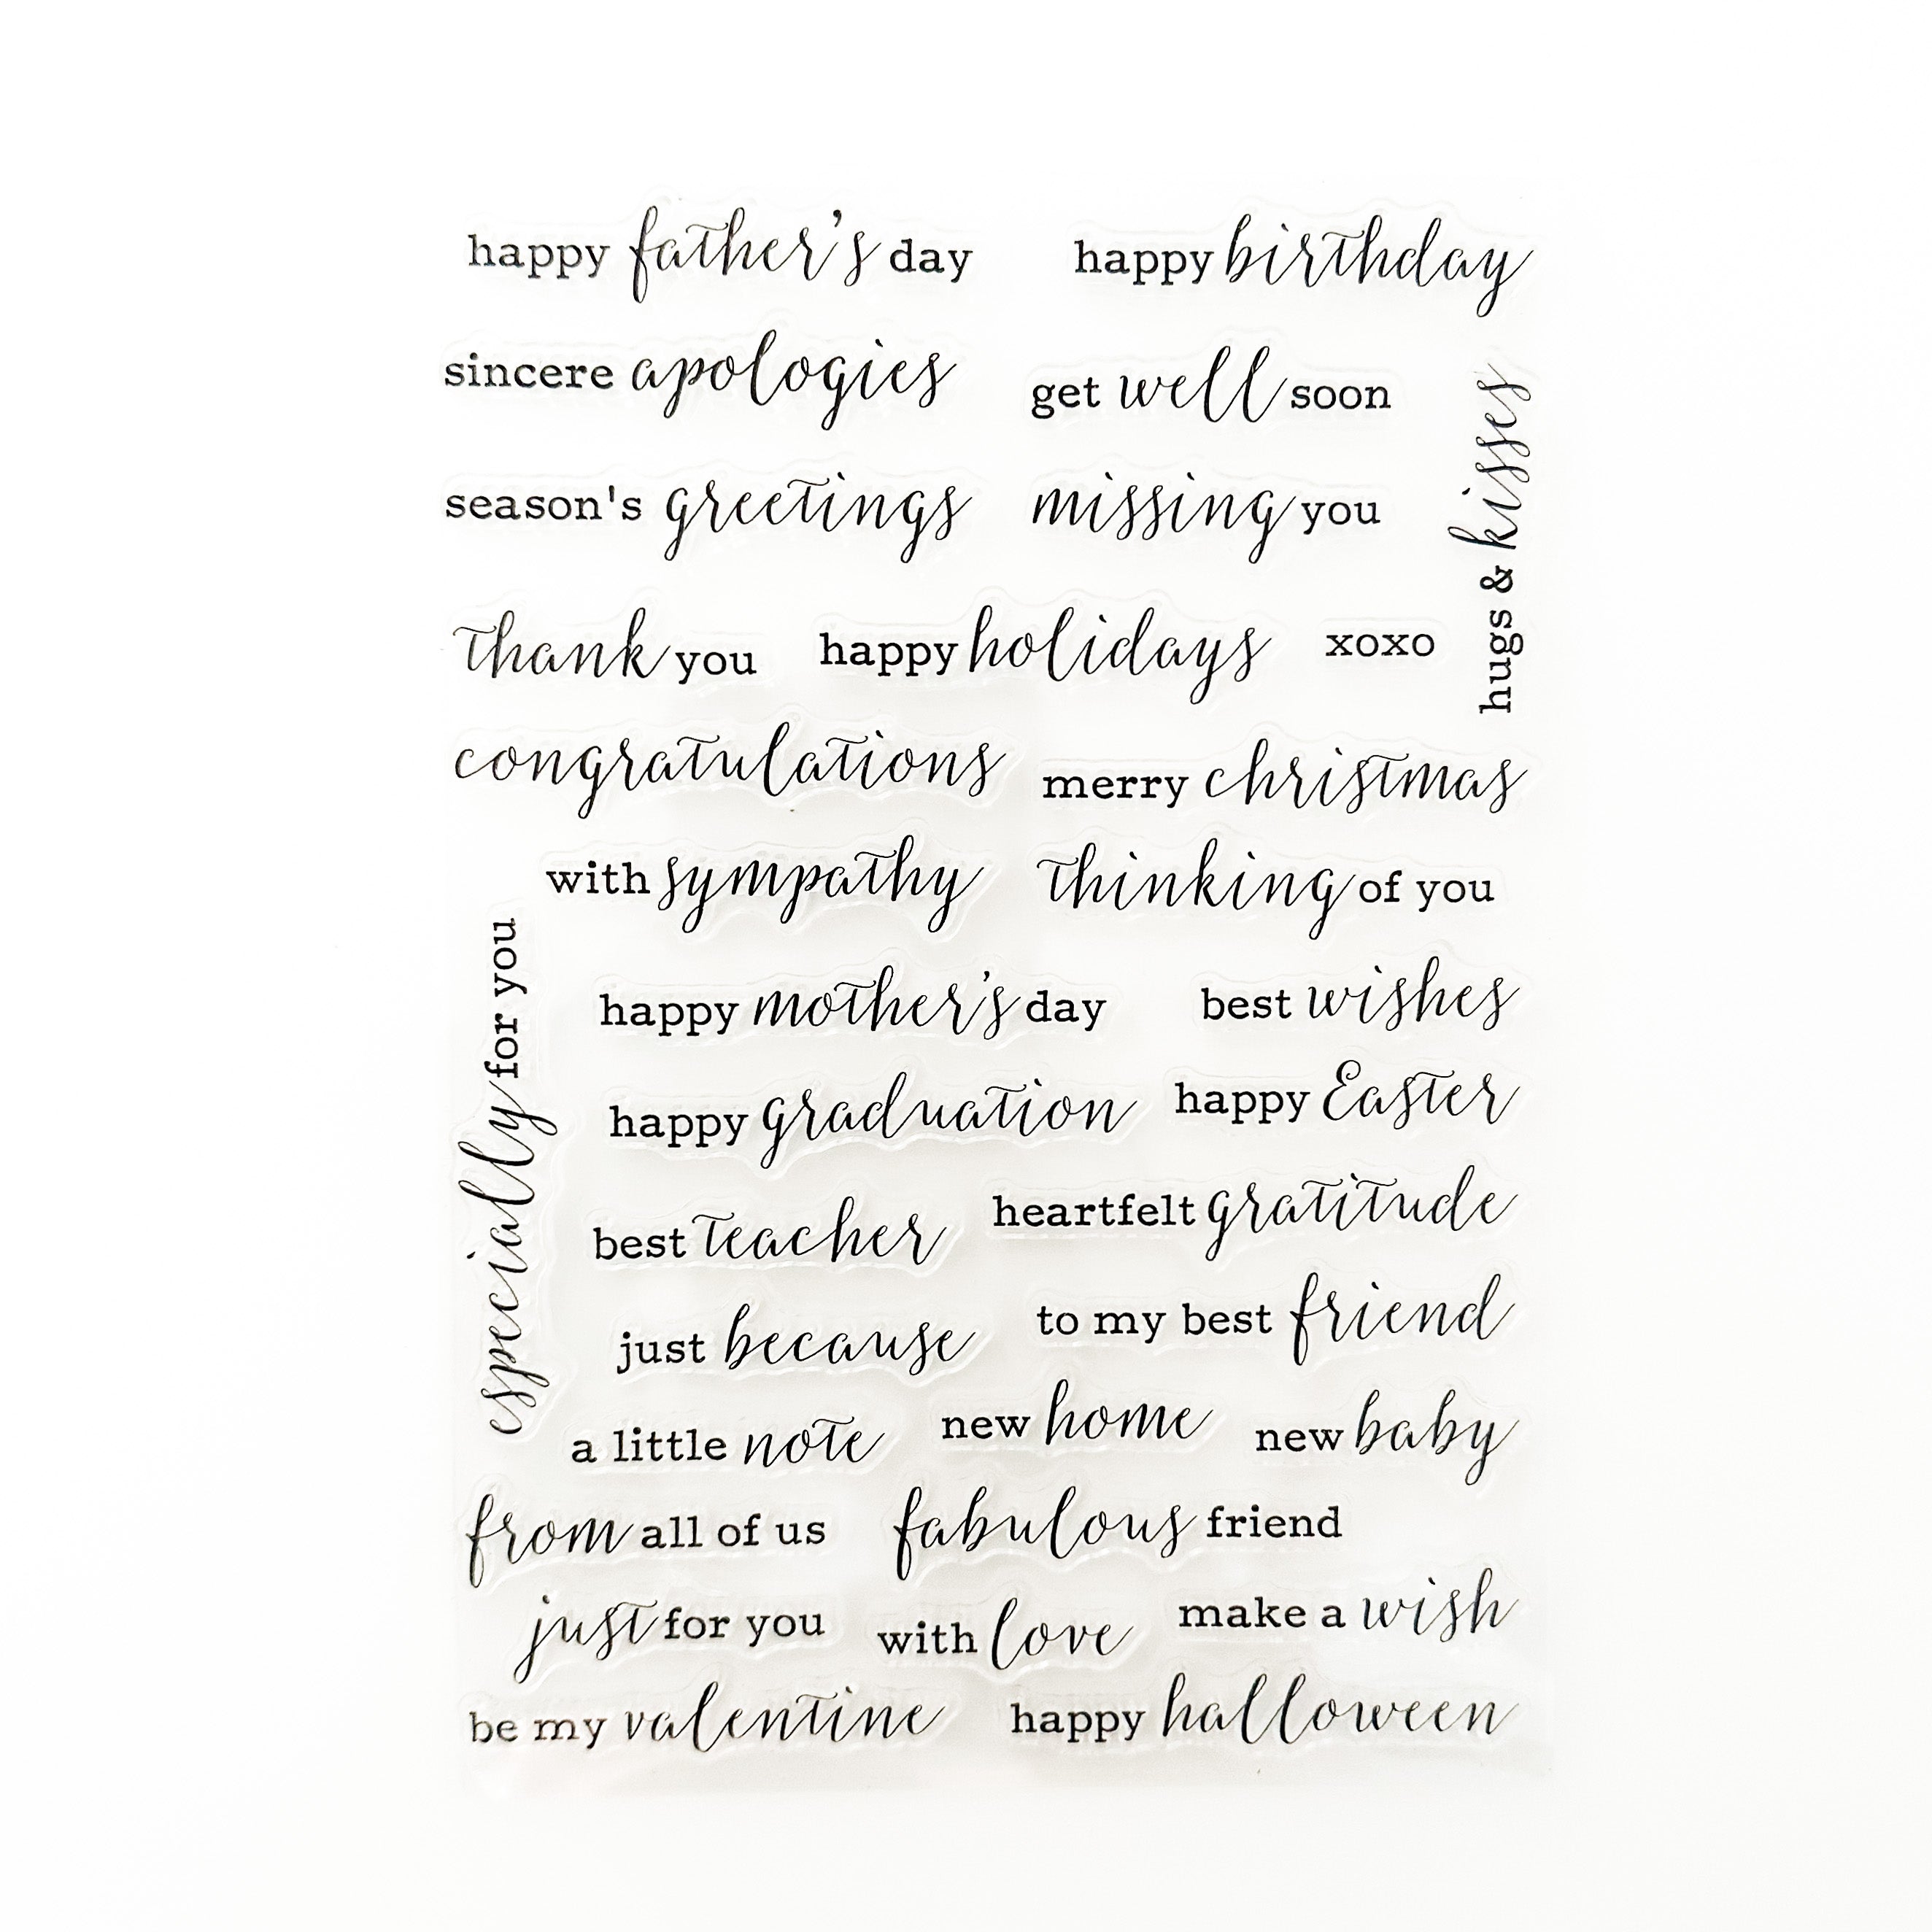 happy father's day
happy birthday
sincere apologies
get well soon
hugs & kisses
season's greetings
missing you
thank you
happy holidays
xoxo
congratulations
merry christmas
with sympathy
thinking of you
especially for you
happy mother's day
best wishes
happy graduation
happy Easter
best teacher
heartfelt gratitude
just because
to my best friend
a little note
new home
new baby
from all of us
fabulous friend
just for you
with love
make a wish
be my valentine
happy halloween